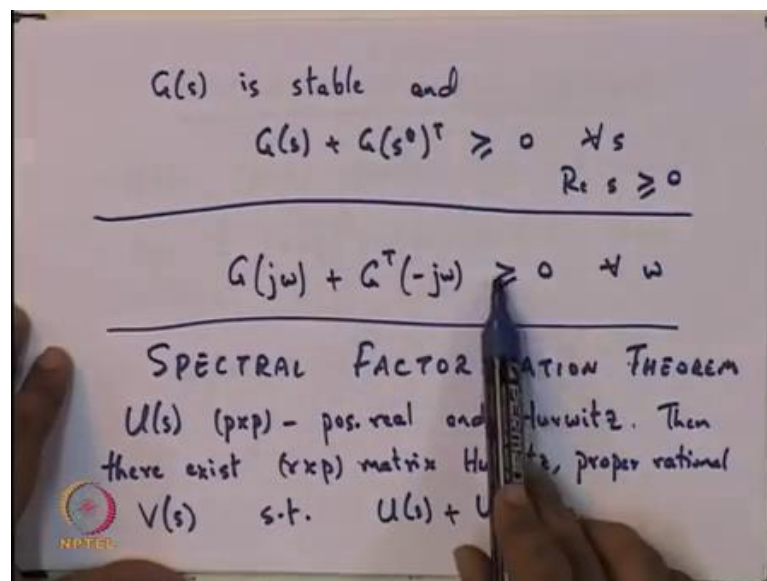 G(s) is stable and
G(s) + G(s*)ᵀ ≥ 0 ∀ s
Re s ≥ 0
G(jω) + Gᵀ(-jω) ≥ 0 ∀ ω
SPECTRAL FACTOR ATION THEOREM
U(s) (p×p) - pos. real and Hurwitz. Then
there exist (r×p) matrix Hu z, proper rational
V(s) s.t. U(s) + U
NPTEL